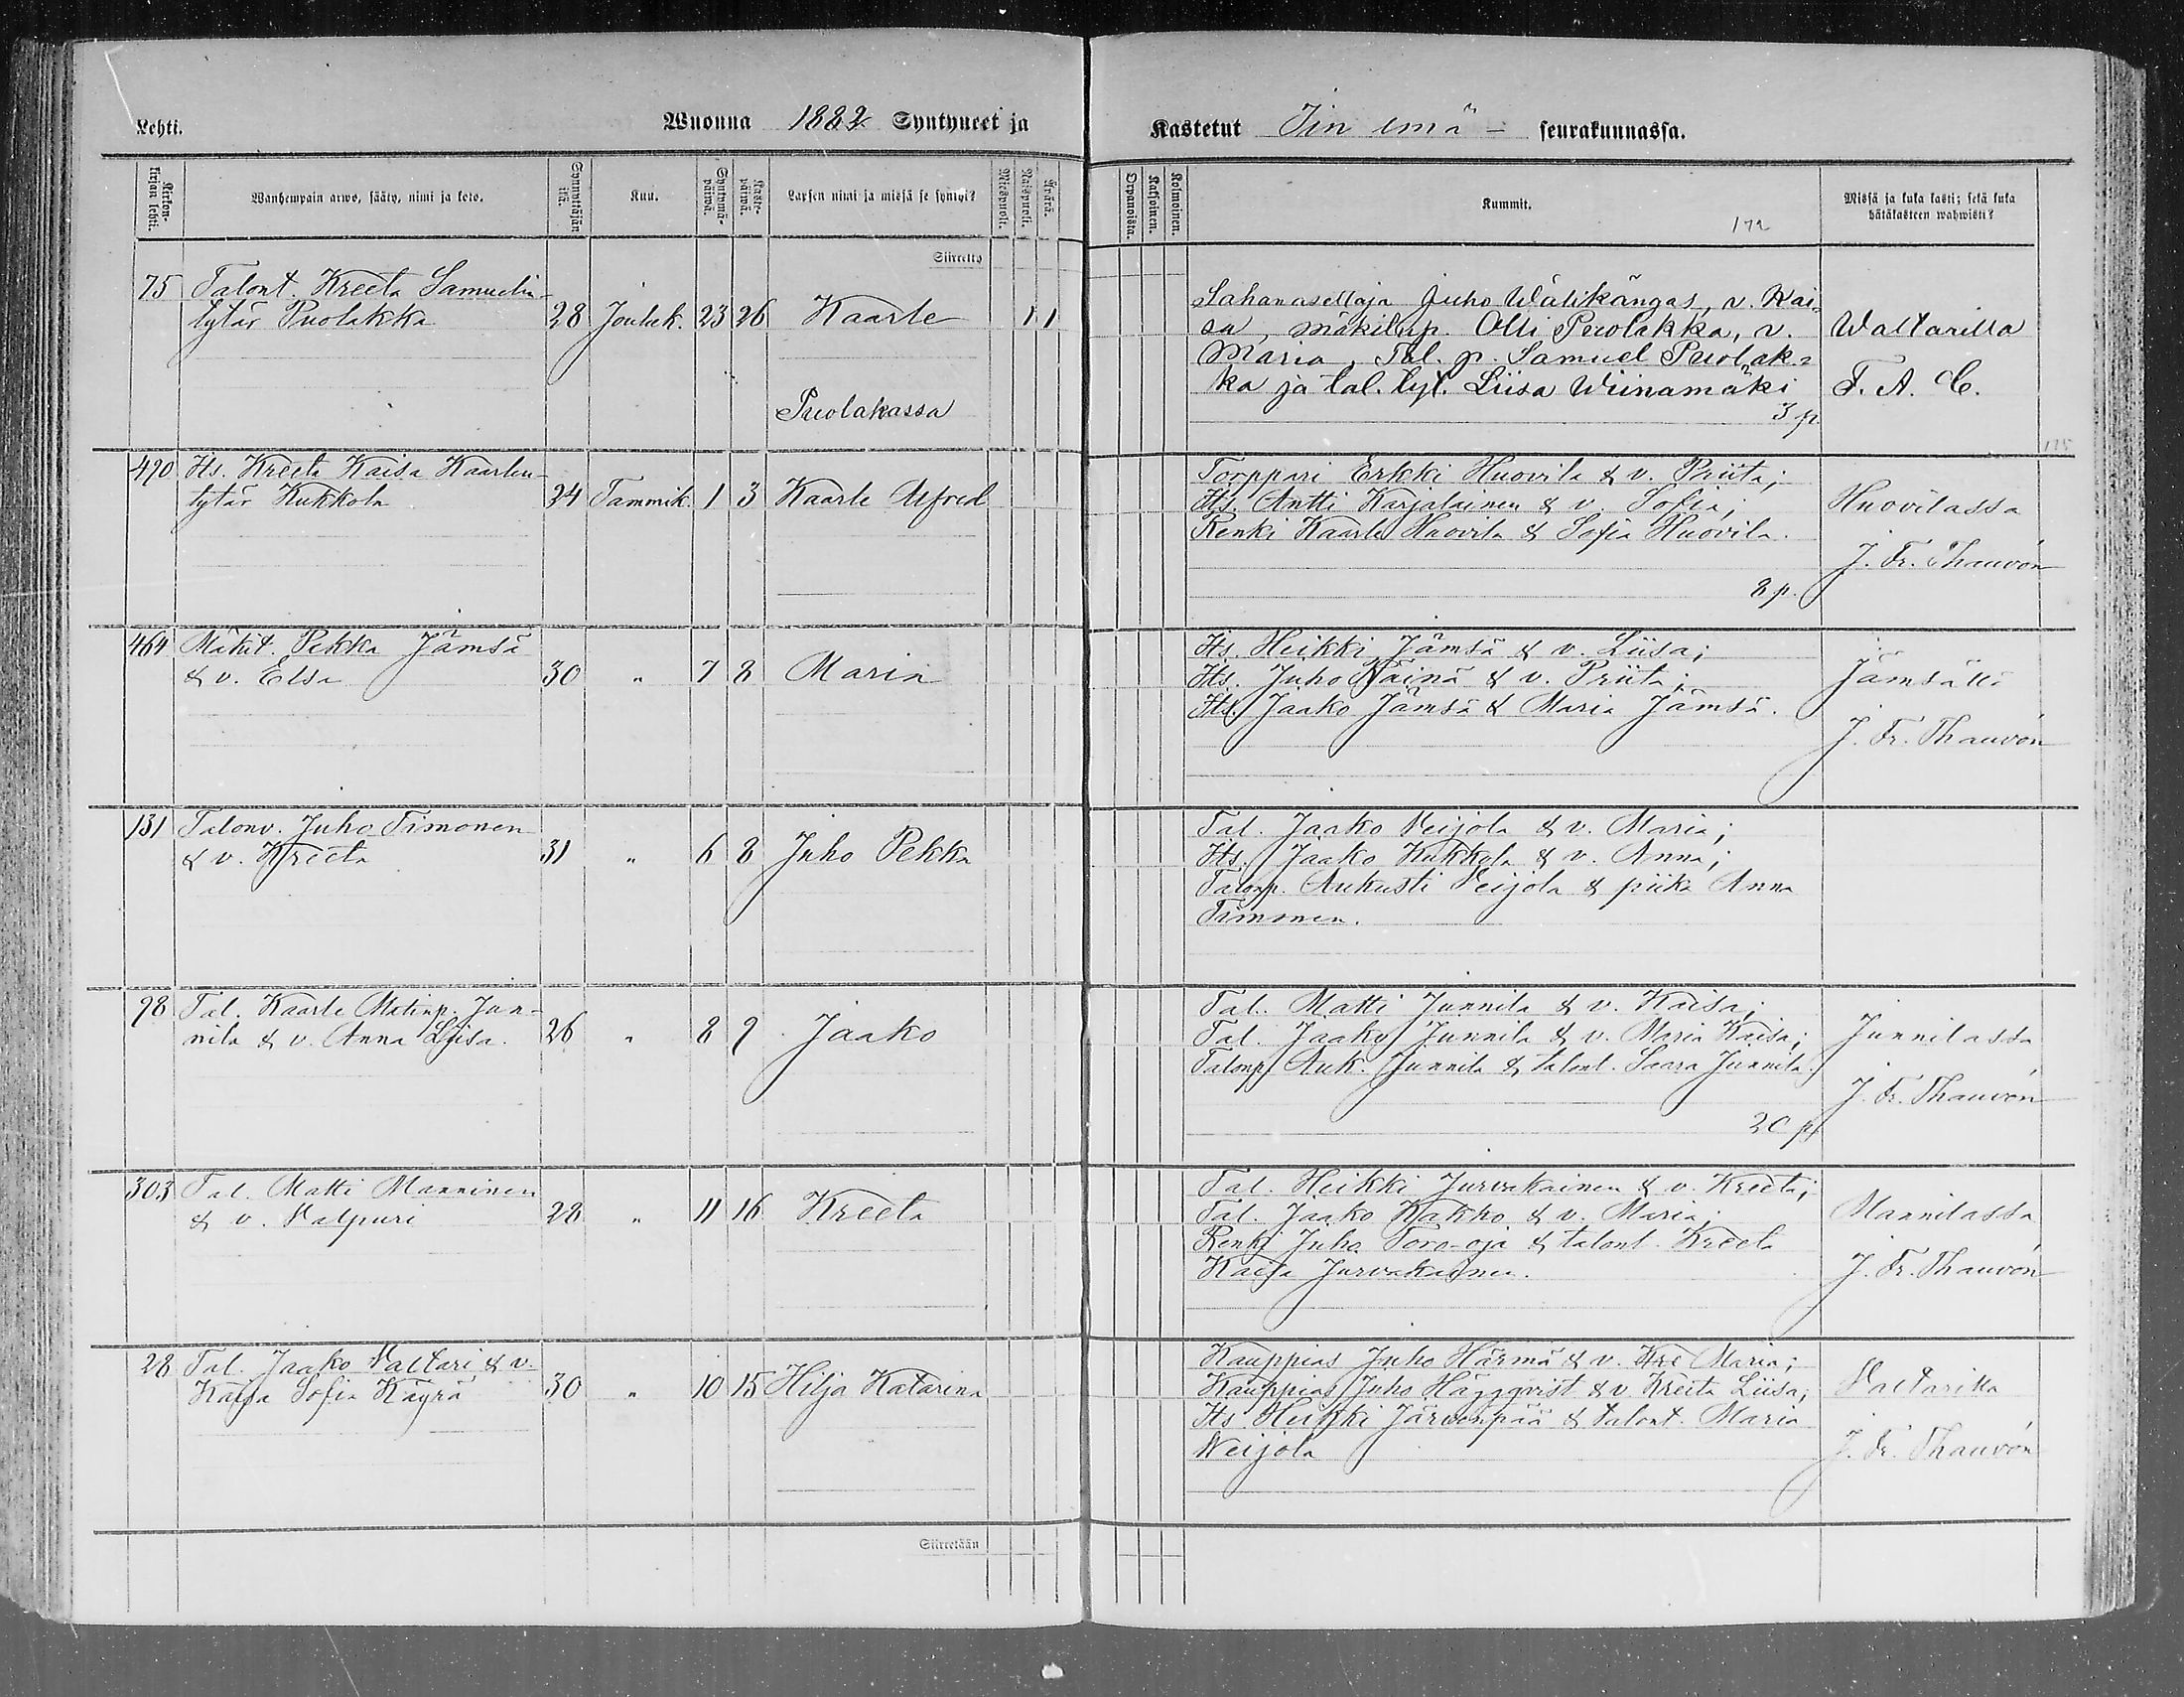 Lehti.
Wuonna 1882 Syntyneet ja
Kirkonkirjan lehti.
Wanhempain arwo, sääty, nimi ja koto.
Synnyttäjän ikä.
Kuu.
Syntymäpäiwä.
Kastepäiwä.
Lapsen nimi ja missä se syntyi?
Miespuoli.
Waispuoli.
Äpärä.
Siirretty
75 Talont. Kreeta Samuelin-
tytär Puolakka 28 Jouluk. 23 26 Kaarle 1 1
Puolakassa
490 Its. Kreeta Kaisa Kaarlen-
tytär Kukkola 24 Tammik. 1 3 Kaarle Alfred
464 Mäkit. Pekka Jämsä
& v. Elsa 30 " 7 8 Maria
131 Talonv. Juho Timonen
& v. Kreeta 31 " 6 8 Juho Pekka
98 Tal. Kaarle Matinp. Jun-
nila & v. Anna Liisa. 26 " 8 9 Jaako
303 Tal. Matti Manninen
& v. Valpuri 28 " 11 16 Kreeta
28 Tal. Jaako Valtari & v.
Kaisa Sofia Käyrä 30 " 10 15 Hilja Katarina
Siirretään
Kastetut Iin emä- seurakunnassa.
Orpanoista.
Kaksoinen.
Kolmoinen.
Kummit.
172
Missä ja kuka kasti; sekä kuka
hätäkasteen wahwisti?
Sahanasettaja Juho Wälikangas, v. Kai-
sa, mäkitup. Olli Puolakka, v.
Maria, Tal. p. Samuel Puolak-
ka ja tal. tyt. Liisa Wiinamäki
3 p
Waltarilla
F. A. C.
115
Torppari Erkki Huovila & v. Priita;
Its. Antti Karjalainen & v. Sofia;
Renki Kaarle Huovila & Sofia Huovila.
8 p.
Huovilassa
J. Fr. Thauvón
Its. Heikki Jämsä & v. Liisa;
Its. Juho Näinä & v. Priita;
Its. Jaako Jämsä & Maria Jämsä.
Jämsällä
J. Fr. Thauvón
Tal. Jaako Veijola & v. Maria;
Its. Jaako Kukkola & v. Anna;
Talonp. Aukusti Veijola & piika Anna
Timonen.
Tal. Matti Junnila & v. Kaisa;
Tal. Jaako Junnila & v. Maria Kaisa;
Talonp. Auk. Junnila & talont. Saara Junnila.
20 p.
Junnilassa
J. Fr. Thauvón
Tal. Heikki Jurvakainen & v. Kreeta;
Tal. Jaako Kakko & v. Maria;
Renki Juho Toro-oja & talont. Kreeta
Kaisa Jurvakainen.
Mannilassa
J. Fr. Thauvón
Kauppias Juho Härmä & v. Kre Maria;
Kauppias Juho Häggqvist & v. Kreeta Liisa;
Its. Heikki Järvenpää & talont. Maria
Weijola
Valtarilla
J. Fr. Thauvón